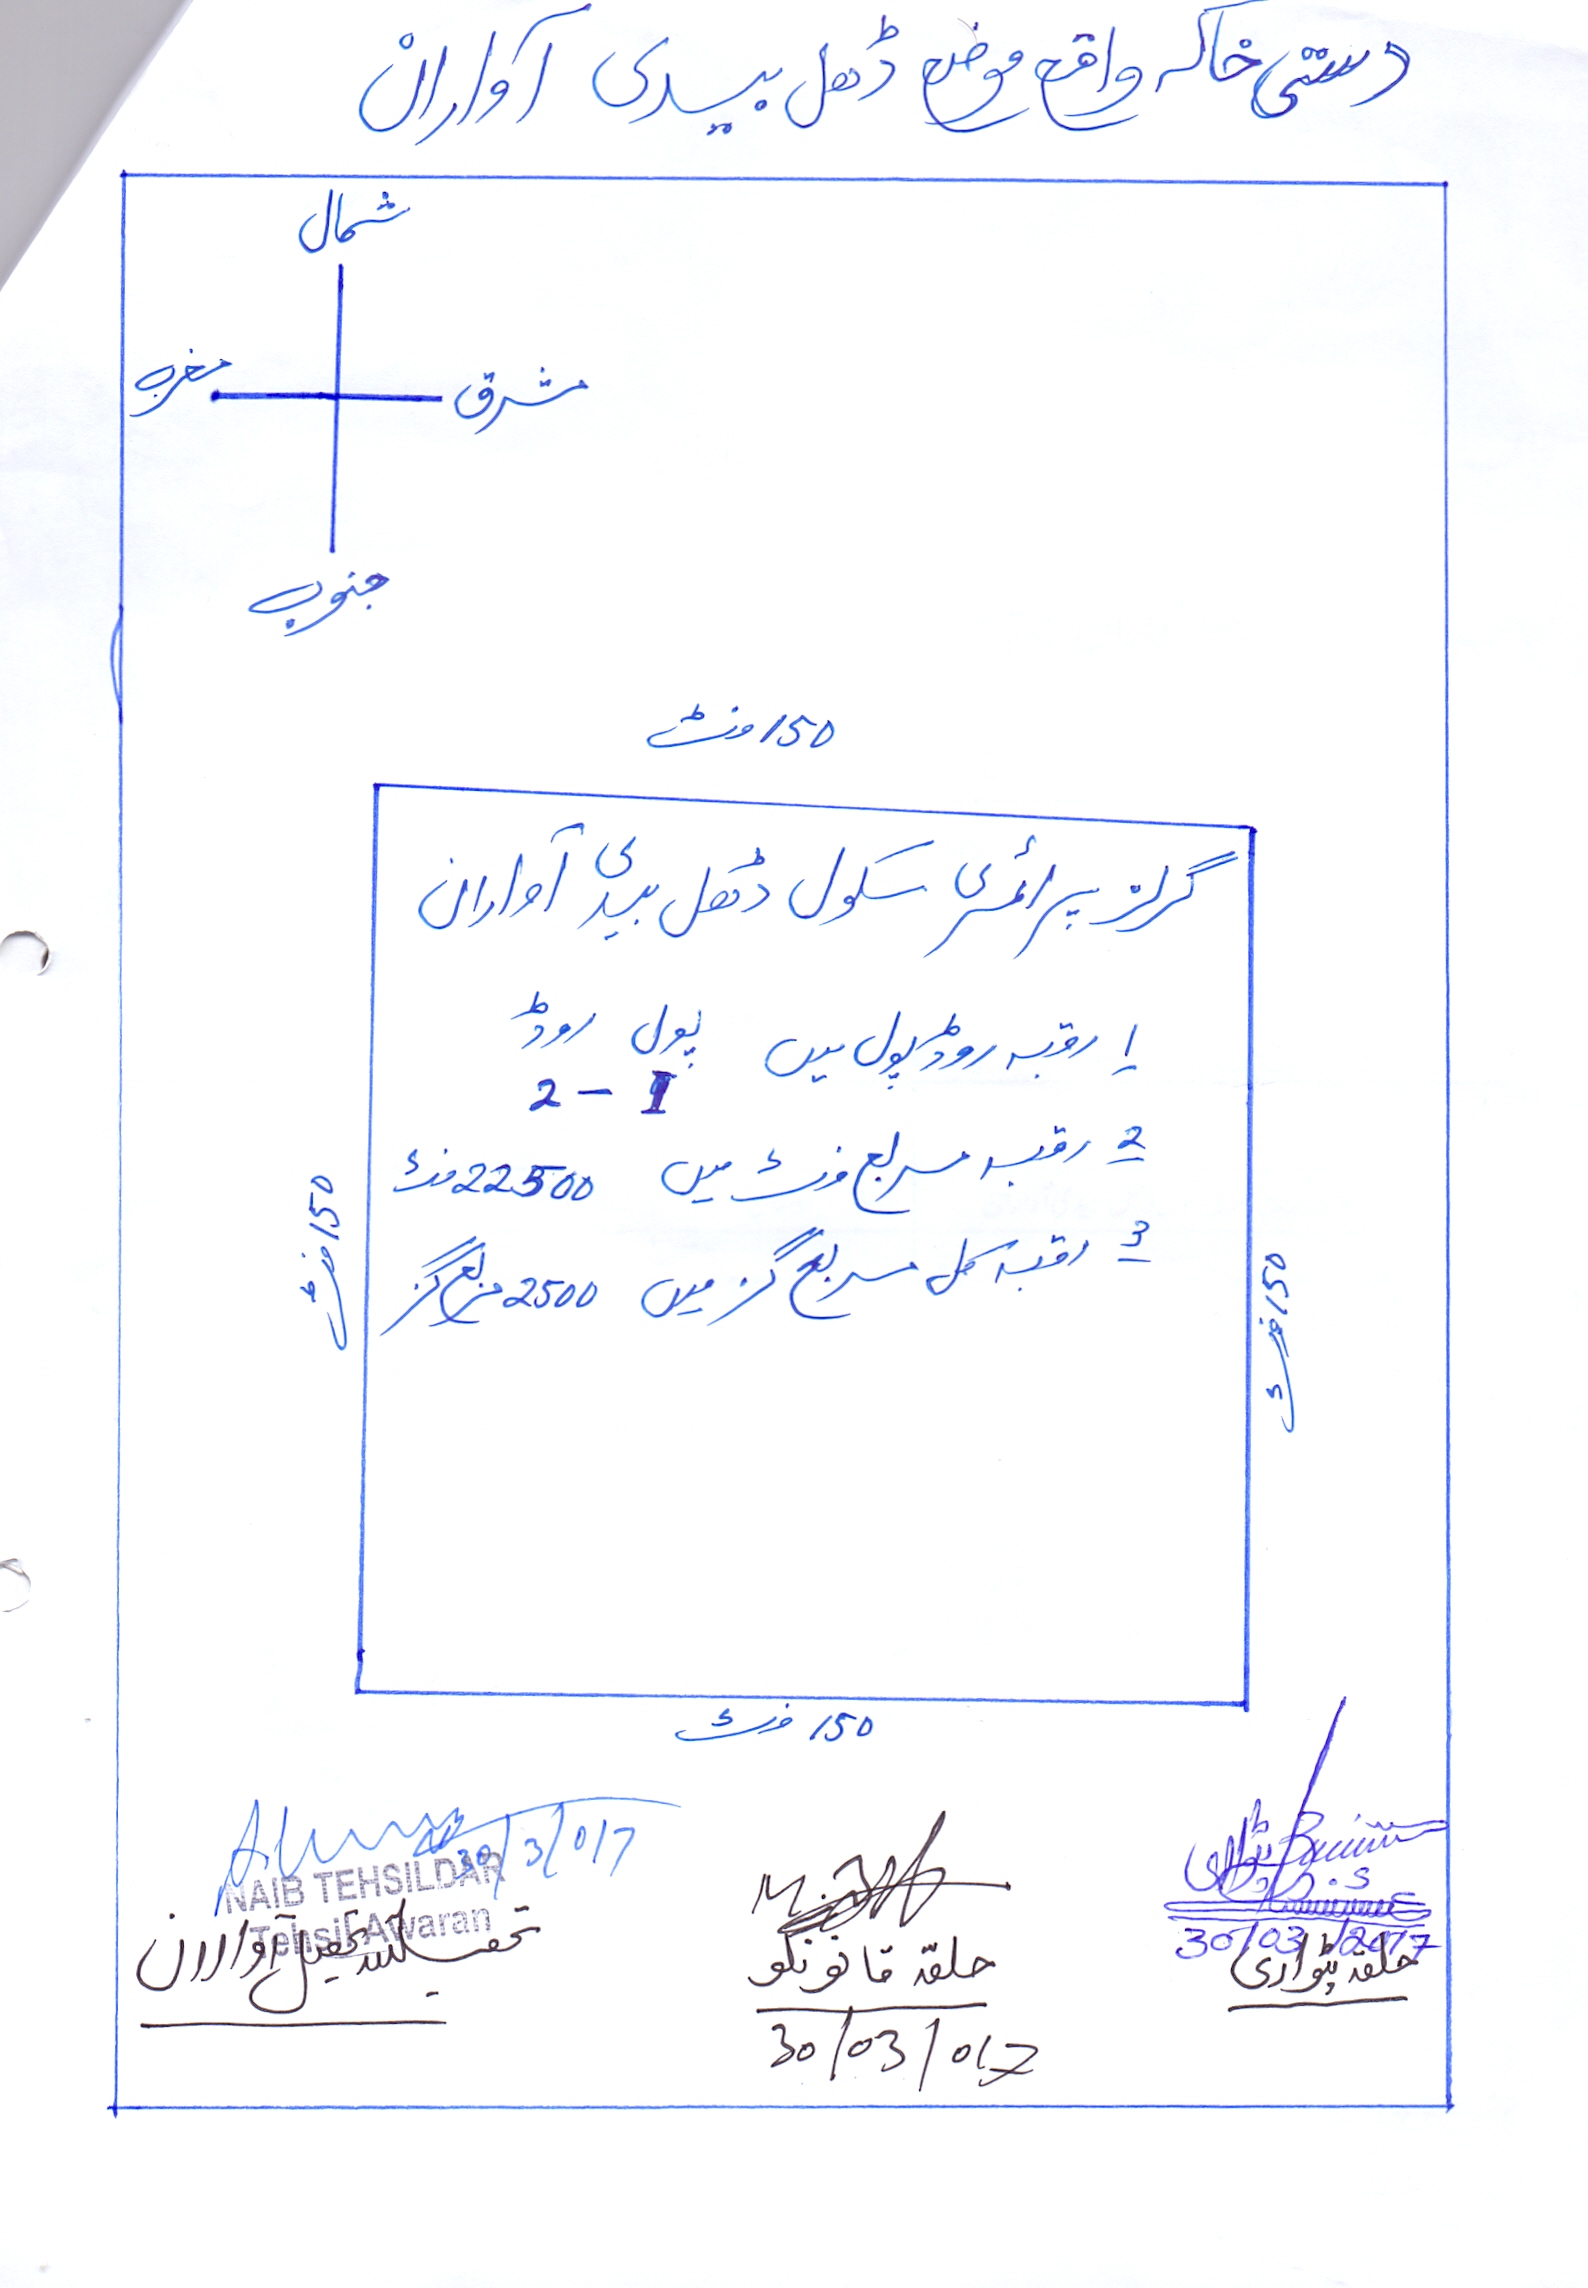 دستی خاکہ واقع موضع ڈھل بیدی آواران
شمال
مغرب
مشرق
جنوب
150 فٹ
گرلز پرائمری سکول ڈھل بیدی آواران
1 رقبہ روڈ پول میں پول روڈ
2 - 1
2 رقبہ مربع فٹ میں 22500 فٹ
3 رقبہ کل مربع گز میں 2500 مربع گز
150 فٹ
150 فٹ
150 فٹ
30/3/017
NAIB TEHSILDAR
Tehsil Awaran
تحصیل آواران
حلقہ قانونگو
30/03/017
پٹواری
30/03/2017
حلقہ پٹواری